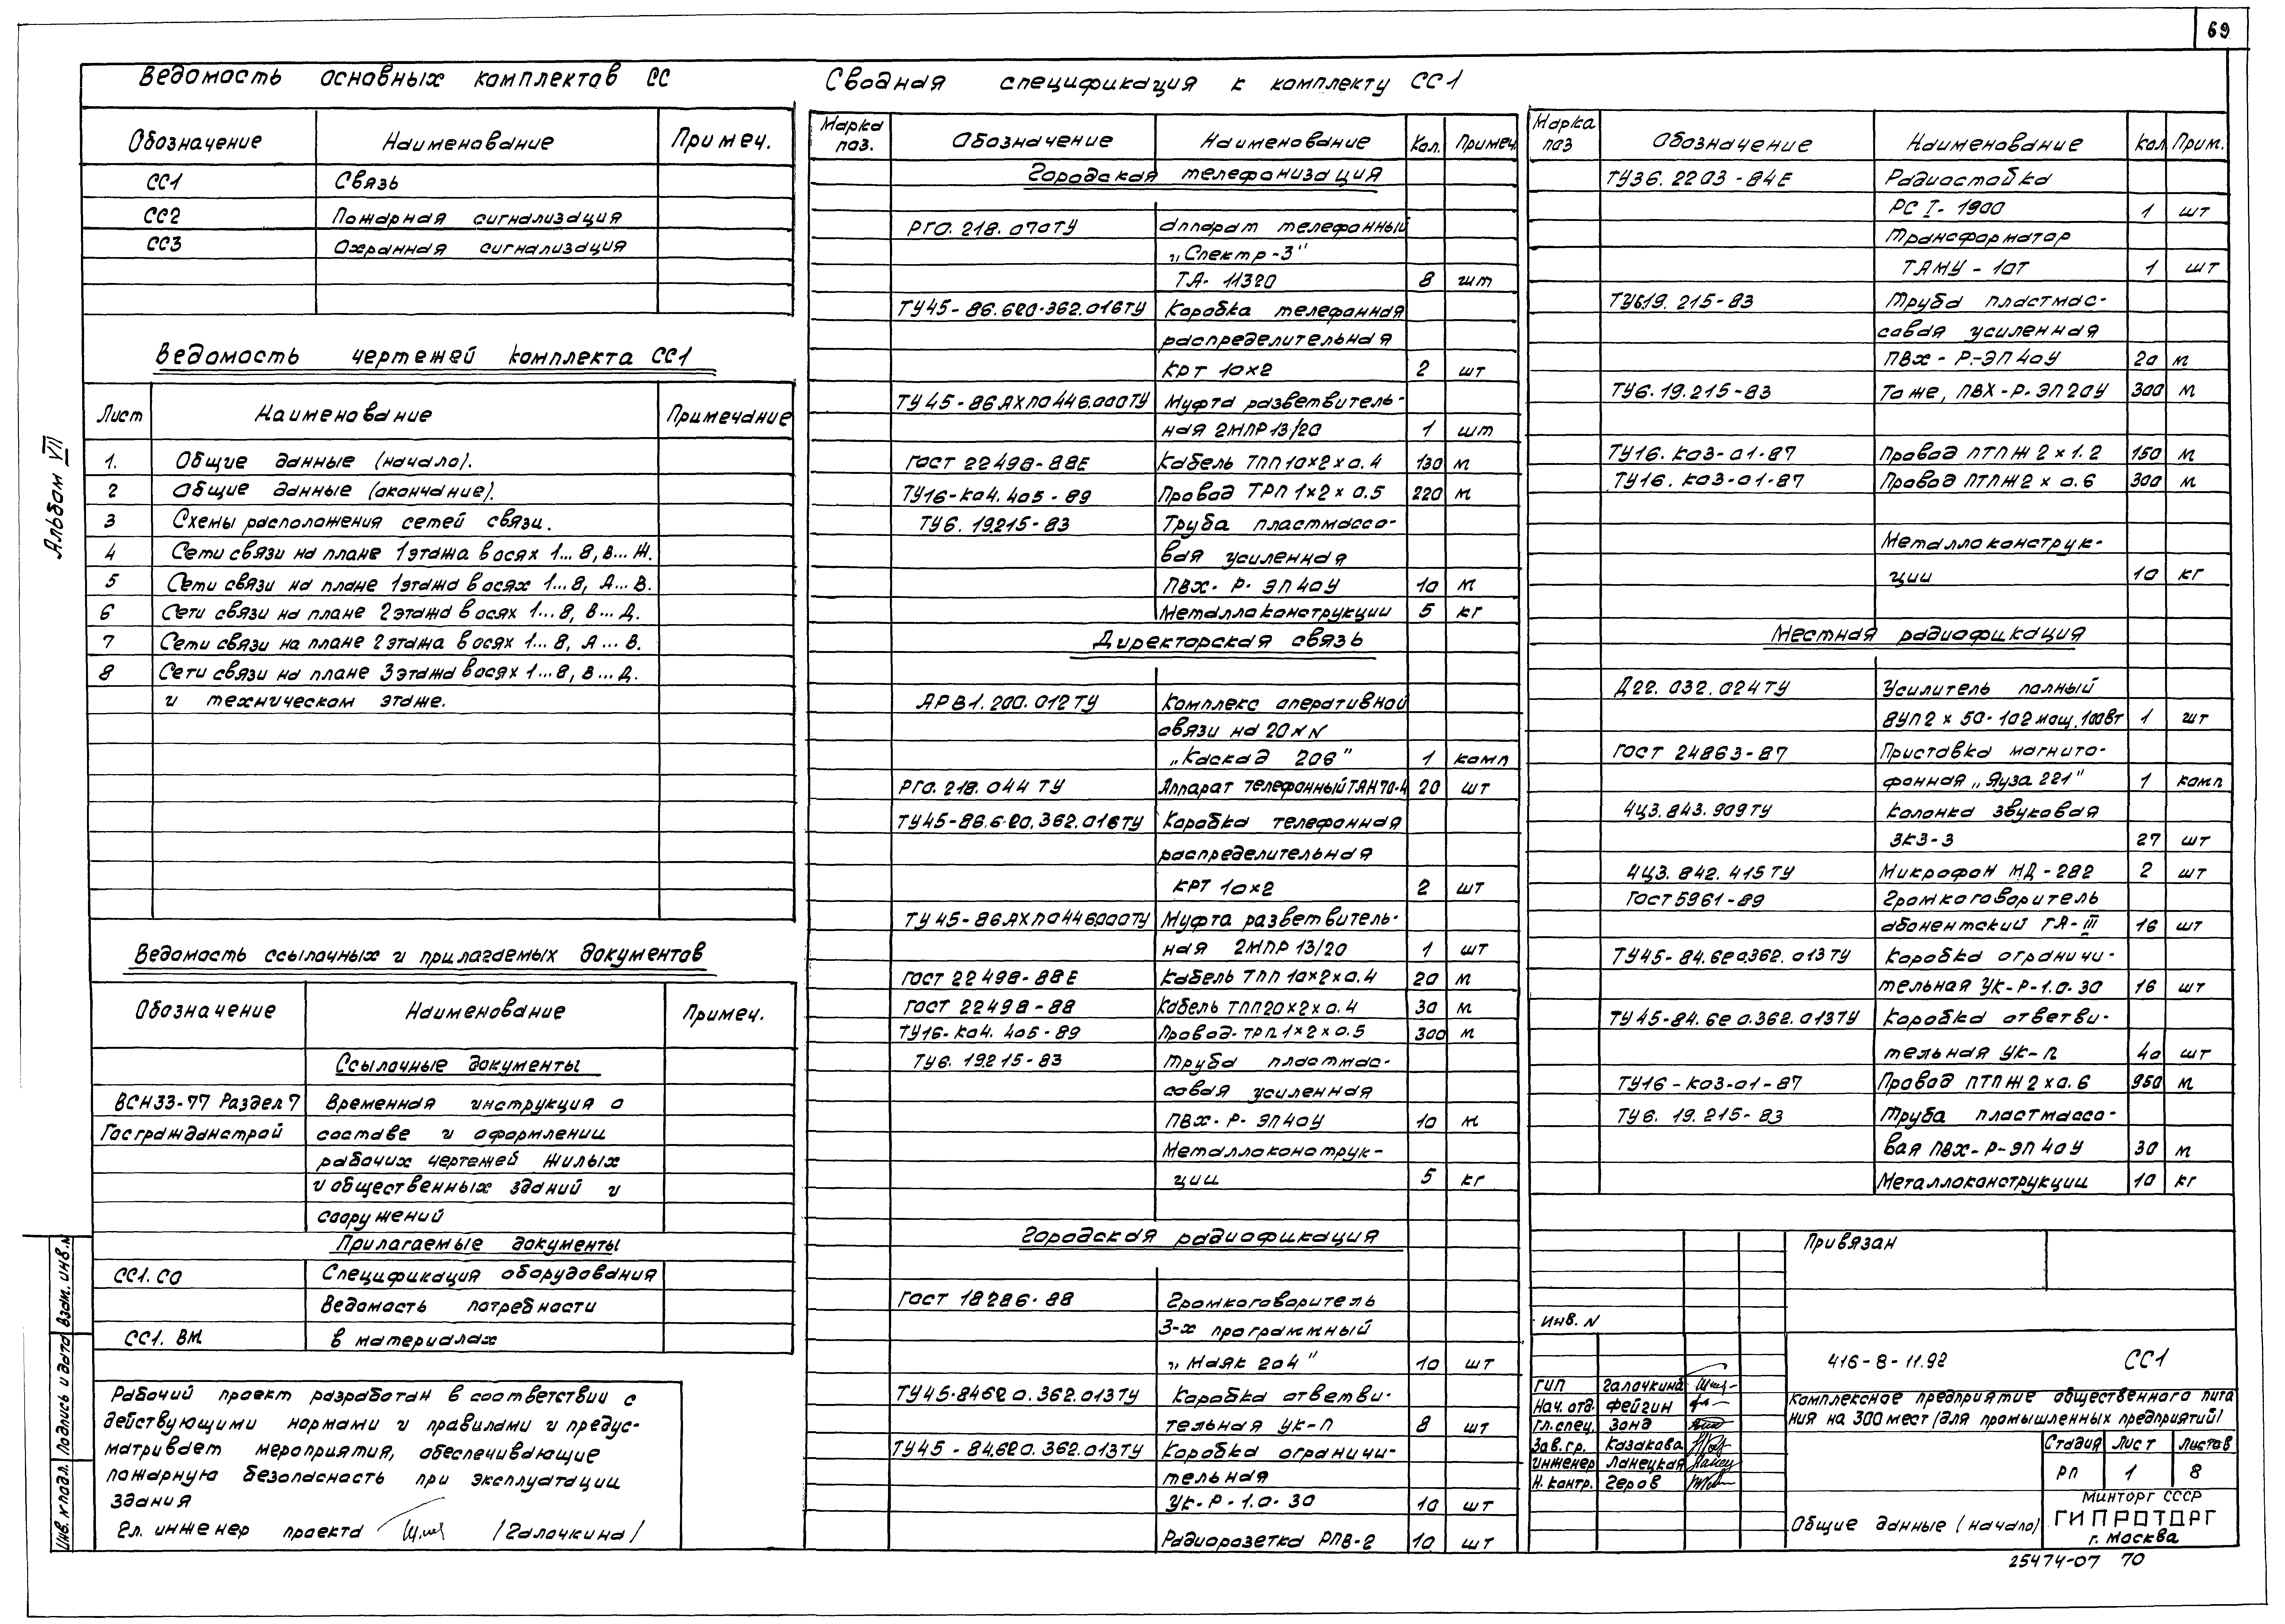 69
Альбом VII
Ведомость основных комплектов СС
Обозначение Наименование Примеч.
СС1 Связь
СС2 Пожарная сигнализация
СС3 Охранная сигнализация
Ведомость чертежей комплекта СС1
Лист Наименование Примечание
1. Общие данные (начало).
2 Общие данные (окончание).
3 Схемы расположения сетей связи.
4 Сети связи на плане 1 этажа в осях 1...8, В...Ж.
5 Сети связи на плане 1 этажа в осях 1...8, А...В.
6 Сети связи на плане 2 этажа в осях 1...8, В...Д.
7 Сети связи на плане 2 этажа в осях 1...8, А...В.
8 Сети связи на плане 3 этажа в осях 1...8, В...Д.
и техническом этаже.
Ведомость ссылочных и прилагаемых документов
Обозначение Наименование Примеч.
Ссылочные документы
ВСН33-77 Раздел 7 Временная инструкция о
Госгражданстрой составе и оформлении
рабочих чертежей жилых
и общественных зданий и
сооружений
Прилагаемые документы
СС1.СО Спецификация оборудования
Ведомость потребности
СС1. ВМ в материалах
Рабочий проект разработан в соответствии с
действующими нормами и правилами и предус-
матривает мероприятия, обеспечивающие
пожарную безопасность при эксплуатации
здания
Гл. инженер проекта /Галочкина/
Инв. № подл. Подпись и дата Взам. инв. №
Сводная спецификация к комплекту СС1
Марка поз. Обозначение Наименование Кол. Примеч.
Городская телефонизация
РГО. 218. 070ТУ Аппарат телефонный
„Спектр-3"
ТА- 11320 8 шт
ТУ45-86.6е0.362.016ТУ Коробка телефонная
распределительная
КРТ 10×2 2 шт
ТУ45-86АХП0446.000ТУ Муфта разветвитель-
ная 2МПР13/20 1 шт
ГОСТ 22498-88Е Кабель ТПП10×2×0.4 130 м
ТУ16-К04.405-89 Провод ТРП 1×2×0.5 220 м
ТУ6. 19.215-83 Труба пластмассо-
вая усиленная
ПВХ-Р-ЭП40У 10 м
Металлоконструкции 5 кг
Директорская связь
АРВ1.200.012ТУ Комплекс оперативной
связи на 20NN
„Каскад 206" 1 комп
РГО. 218. 044 ТУ Аппарат телефонный ТАН70-4 20 шт
ТУ45-86.6е0.362.016ТУ Коробка телефонная
распределительная
КРТ 10×2 2 шт
ТУ45-86АХП0446.000ТУ Муфта разветвитель-
ная 2МПР 13/20 1 шт
ГОСТ 22498-88Е Кабель ТПП 10×2×0.4 20 м
ГОСТ 22498-88 Кабель ТПП20×2×0.4 30 м
ТУ16-К04.405-89 Провод-ТРП1×2×0.5 300 м
ТУ6. 19.215-83 Труба пластмас-
совая усиленная
ПВХ-Р-ЭП40У 10 м
Металлоконструк-
ции 5 кг
Городская радиофикация
ГОСТ 18286-88 Громкоговоритель
3-х программный
„Маяк 204" 10 шт
ТУ45-846е0.362.013ТУ Коробка ответви-
тельная УК-П 8 шт
ТУ45-84.6е0.362.013ТУ Коробка ограничи-
тельная
УК-Р-1.0-30 10 шт
Радиорозетка РПВ-2 10 шт
Марка поз Обозначение Наименование Кол Прим.
ТУ36.2203-84Е Радиостойка
РС I-1900 1 шт
Трансформатор
ТАМУ-10Т 1 шт
ТУ619.215-83 Труба пластмас-
совая усиленная
ПВХ-Р-ЭП40У 20 м
ТУ6.19.215-83 То же, ПВХ-Р-ЭП20У 300 м
ТУ16.К03-01-87 Провод ПТПЖ 2×1.2 150 м
ТУ16.К03-01-87 Провод ПТПЖ2×0.6 300 м
Металлоконструк-
ции 10 кг
Местная радиофикация
Д22.032.024ТУ Усилитель полный
8УП2×50-102 мощ.100вт 1 шт
ГОСТ 24863-87 Приставка магнито-
фонная „Яуза 221" 1 комп
4Ц3.843.909ТУ Колонка звуковая
3К3-3 27 шт
4Ц3.842.415ТУ Микрофон МД-282 2 шт
ГОСТ5961-89 Громкоговоритель
абонентский ГА-III 16 шт
ТУ45-84.6е0362.013ТУ Коробка ограничи-
тельная УК-Р-1.0-30 16 шт
ТУ45-84.6е0.362.013ТУ Коробка ответви-
тельная УК-П 40 шт
ТУ16-К03-01-87 Провод ПТПЖ2×0.6 950 м
ТУ6. 19.215-83 Труба пластмассо-
вая ПВХ-Р-ЭП40У 30 м
Металлоконструкции 10 кг
Привязан
Инв. N
416-8-11.92 СС1
ГИП Галочкина
Нач. отд. Фейгин
Гл. спец. Зонд
Зав. гр. Казакова
Инженер Ланецкая
Н. контр. Геров
Комплексное предприятие общественного пита
ния на 300 мест (для промышленных предприятий)
Стадия Лист Листов
РП 1 8
Общие данные (начало)
Минторг СССР
ГИПРОТОРГ
г. Москва
25474-07 70